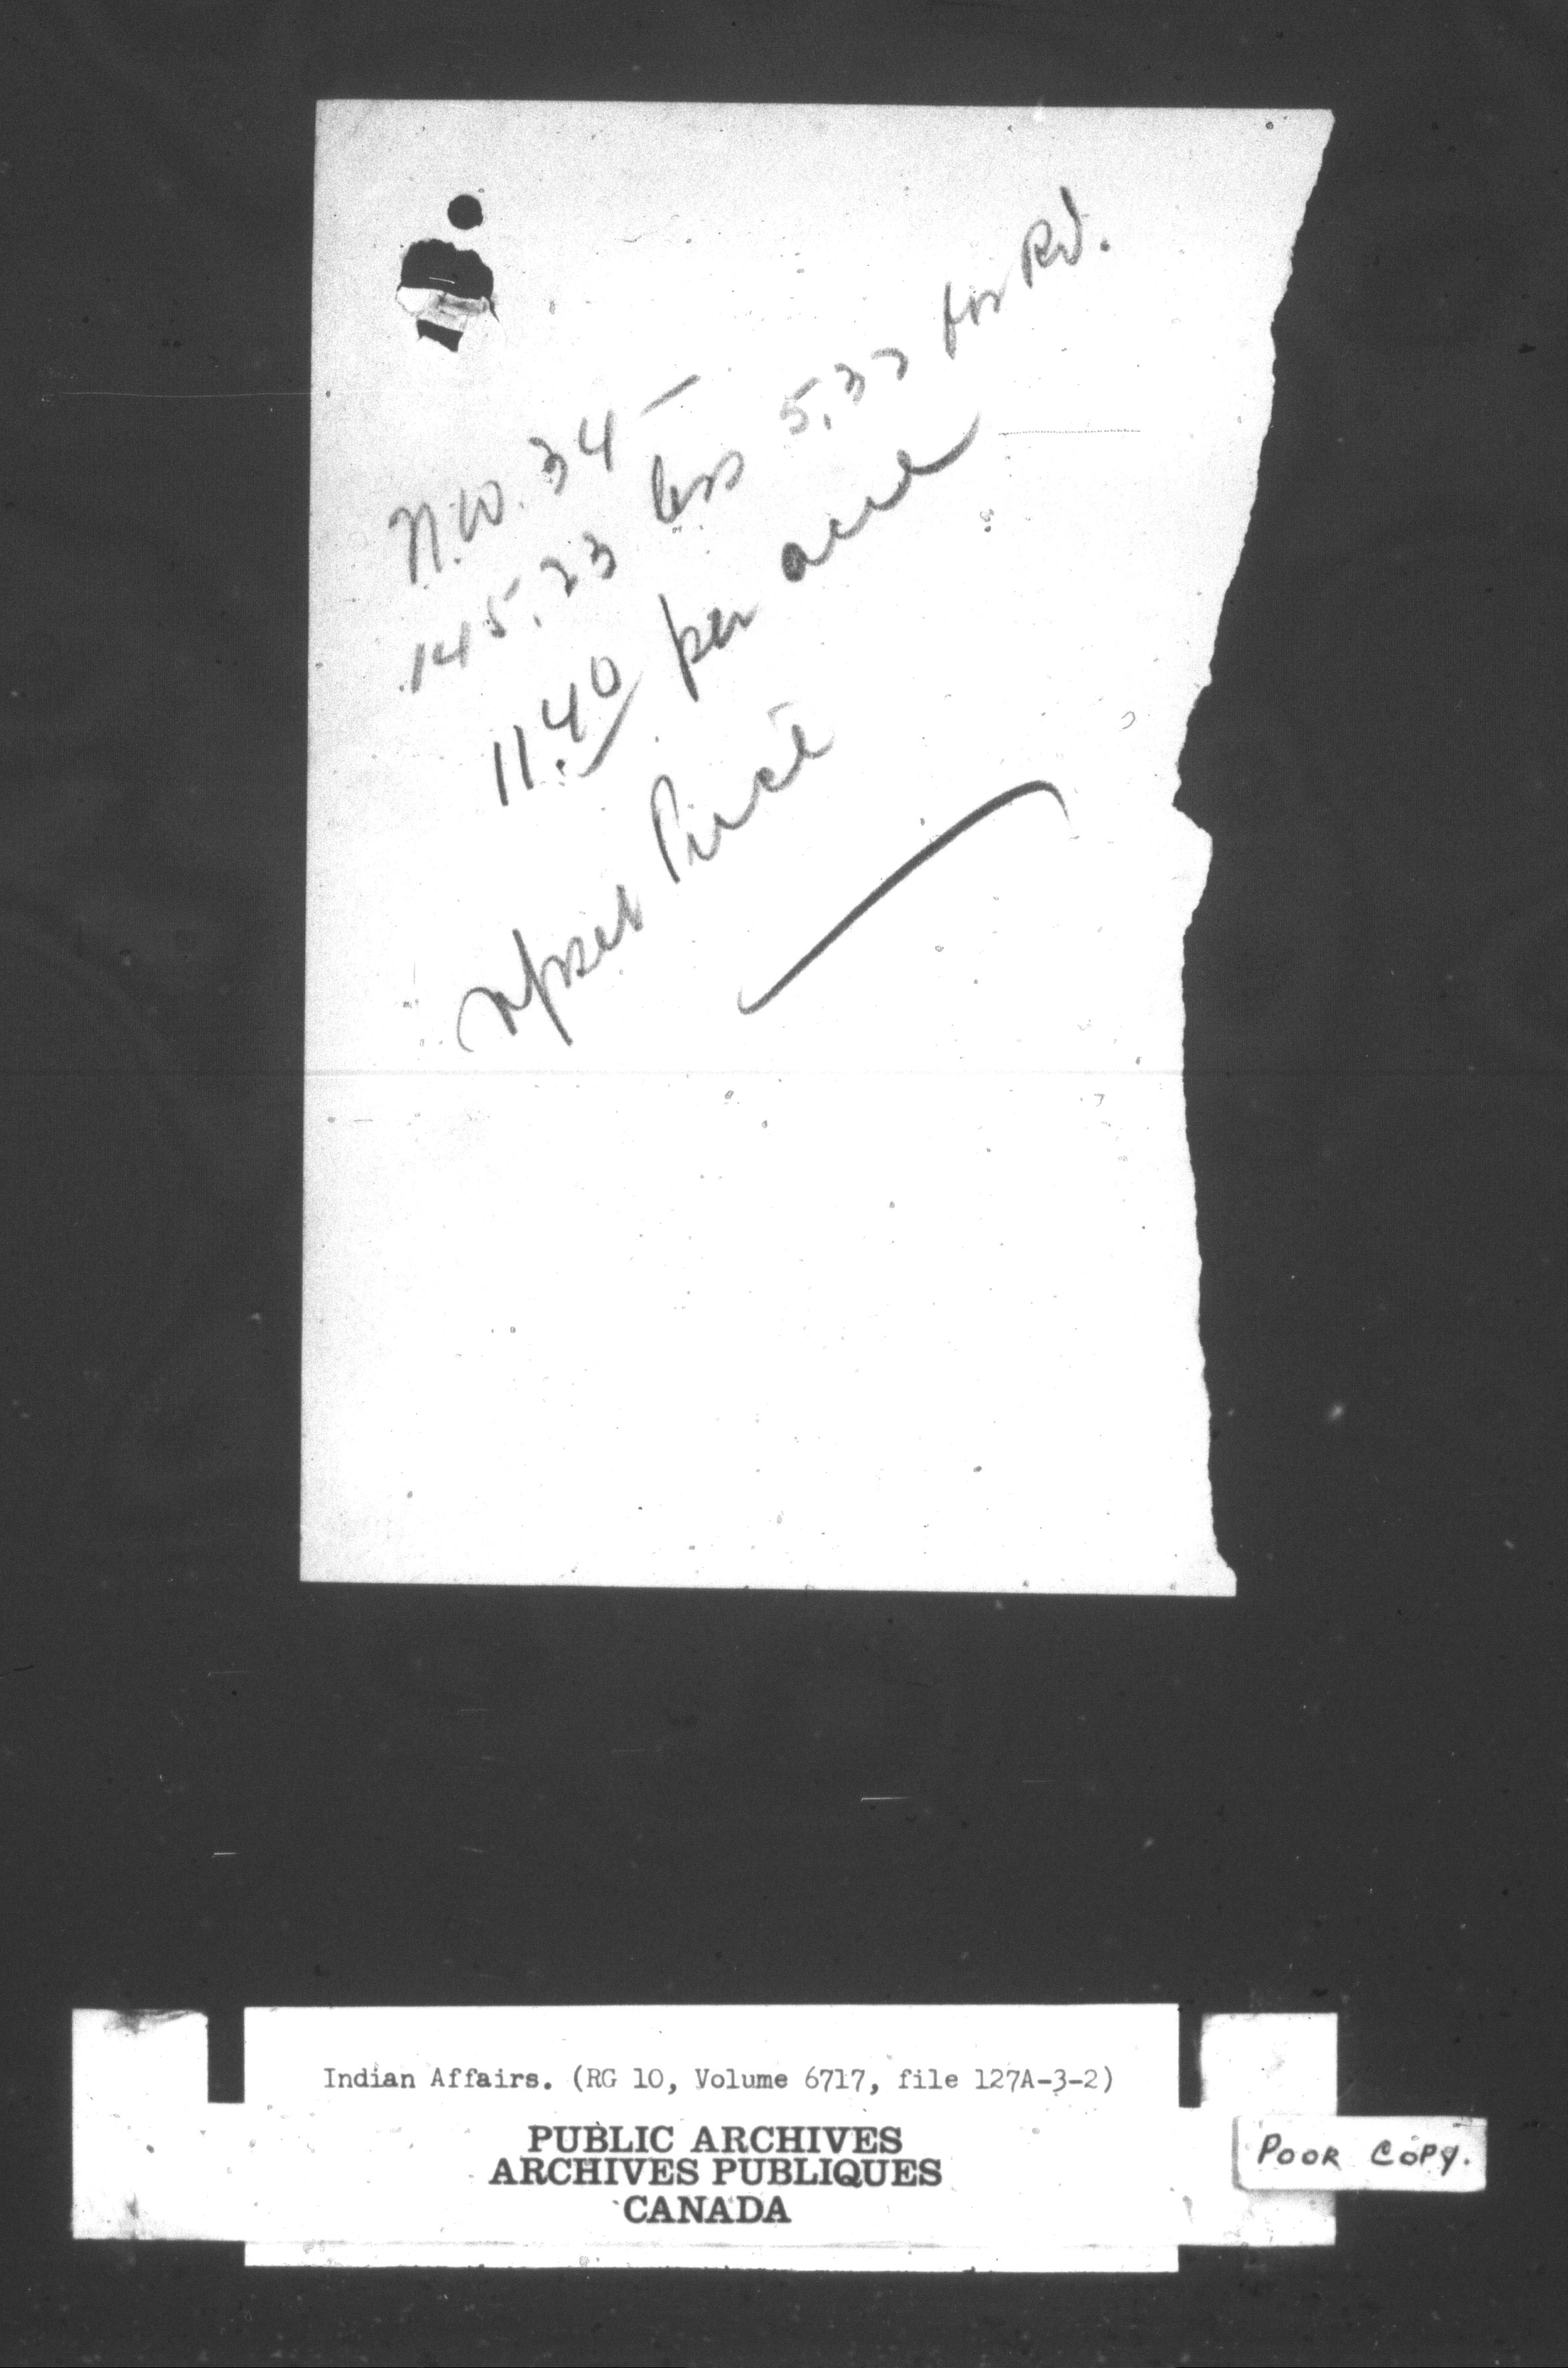 N.W. 34 —
145.23 less 5.32 for Rd.
11.40 per acre
upset Price
Indian Affairs. (RG 10, Volume 6717, file 127A-3-2)
PUBLIC ARCHIVES
ARCHIVES PUBLIQUES
CANADA
POOR COPY.